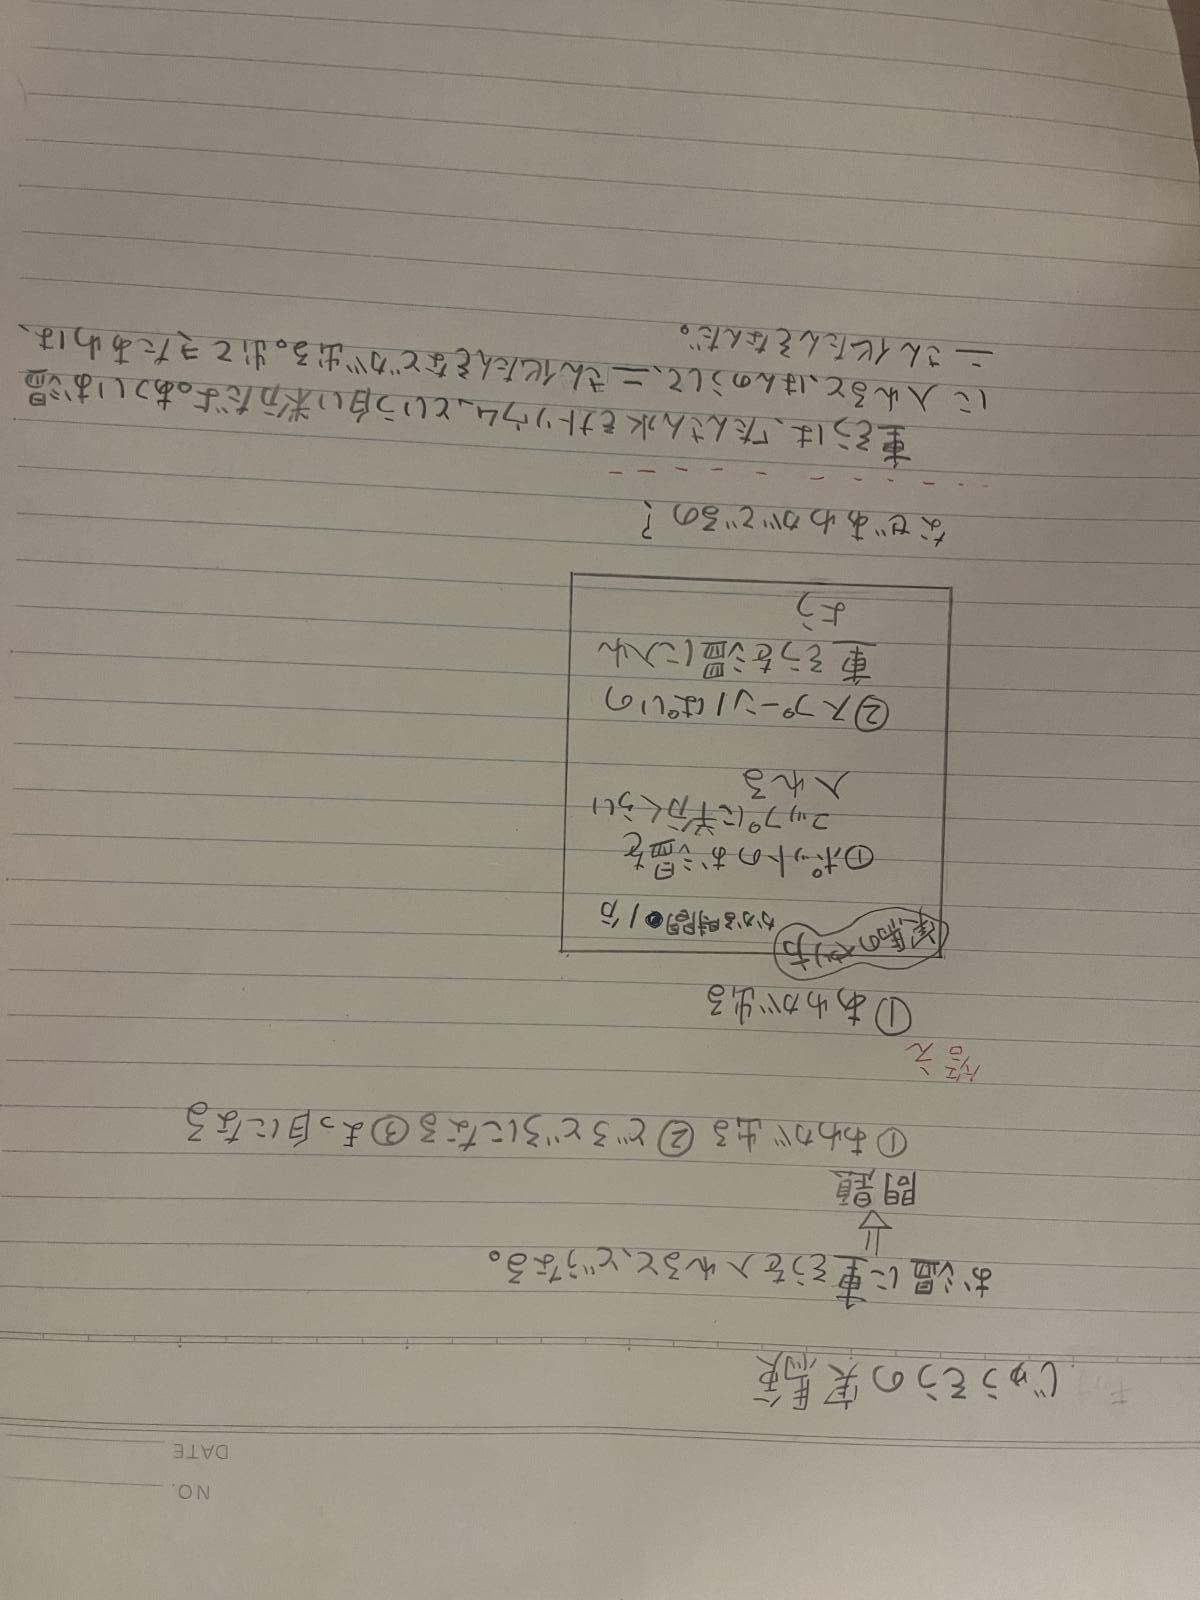 NO.
DATE
じゅうそうの実験
お温に重そうを入れると、どうなる。
問題
①あわが出る ②どろどろになる ③まっ白になる
答え
①あわが出る
実馬のやり方 かかる時間 1分
①ポットのお温を
コップに半分くらい
入れる
②スプーン1ぱいの
重そうを温に入れ
よう
なぜあわがでるの?
重そうは、「たんさん水そナトリウム、という白い米分だよ。あついお温
に入れると、はんのうして、二さん化たんそなどが出る。出て来たあわは、
二さん化たんそなんだ。